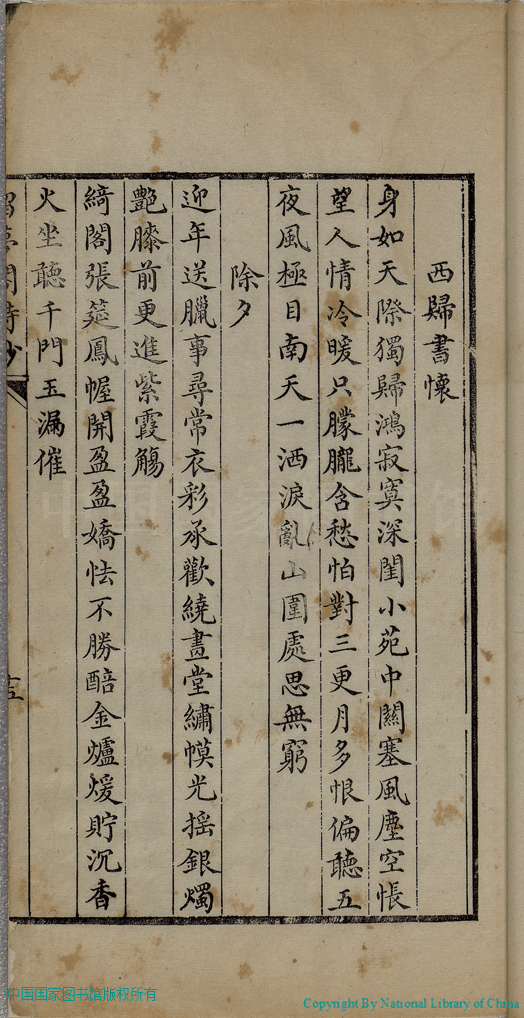 西歸書懷
身如天際獨歸鴻寂寞深閨小苑中關塞風塵空悵
望人情冷暖只朦朧含愁怕對三更月多恨偏聽五
夜風極目南天一洒淚亂山圍處思無窮
除夕
迎年送臘事尋常衣彩承歡繞畫堂繡幙光摇銀燭
艷膝前更進紫霞觴
綺閣張筵鳳幄開盈盈嬌怯不勝醅金爐煖貯沉香
火坐聽千門玉漏催
十五
中国国家图书馆版权所有
Copyright By National Library of China